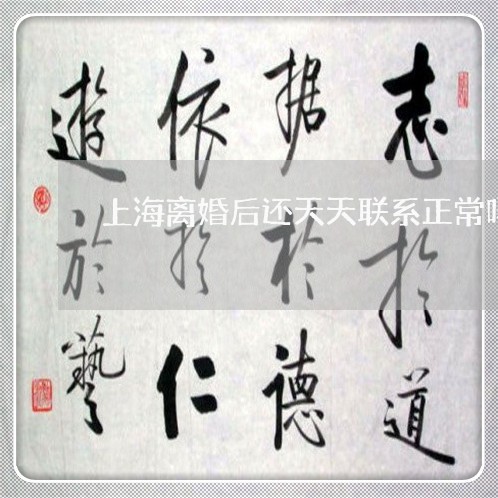 志於道
据於德
依於仁
遊於藝
上海离婚后还天天联系正常